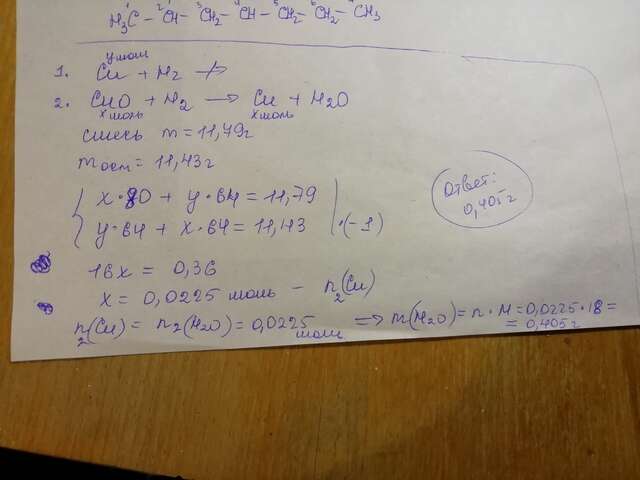 H₃C – CH – CH₂ – CH – CH₂ – CH₂ – CH₃
y моль
1. Cu + H₂ ↛
2. CuO + H₂ → Cu + H₂O
x моль x моль
смесь m = 11,79г
m ост = 11,43г
x·80 + y·64 = 11,79
y·64 + x·64 = 11,43 | ·(-1)
Ответ:
0,405 г
16x = 0,36
x = 0,0225 моль – n₂(Cu)
n₂(Cu) = n₂(H₂O) = 0,0225 моль => m(H₂O) = n·M = 0,0225·18 =
= 0,405 г